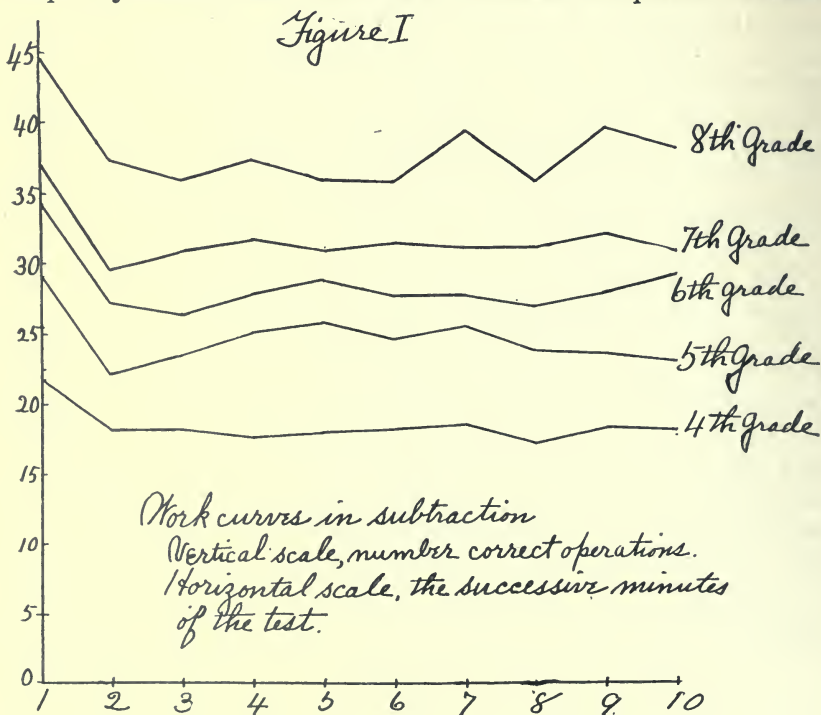 Figure I
45
40
35
30
25
20
15
10
5
0
8th Grade
7th Grade
6th grade
5th Grade
4th Grade
Work curves in subtraction
Vertical scale, number correct operations.
Horizontal scale, the successive minutes
of the test.
1 2 3 4 5 6 7 8 9 10